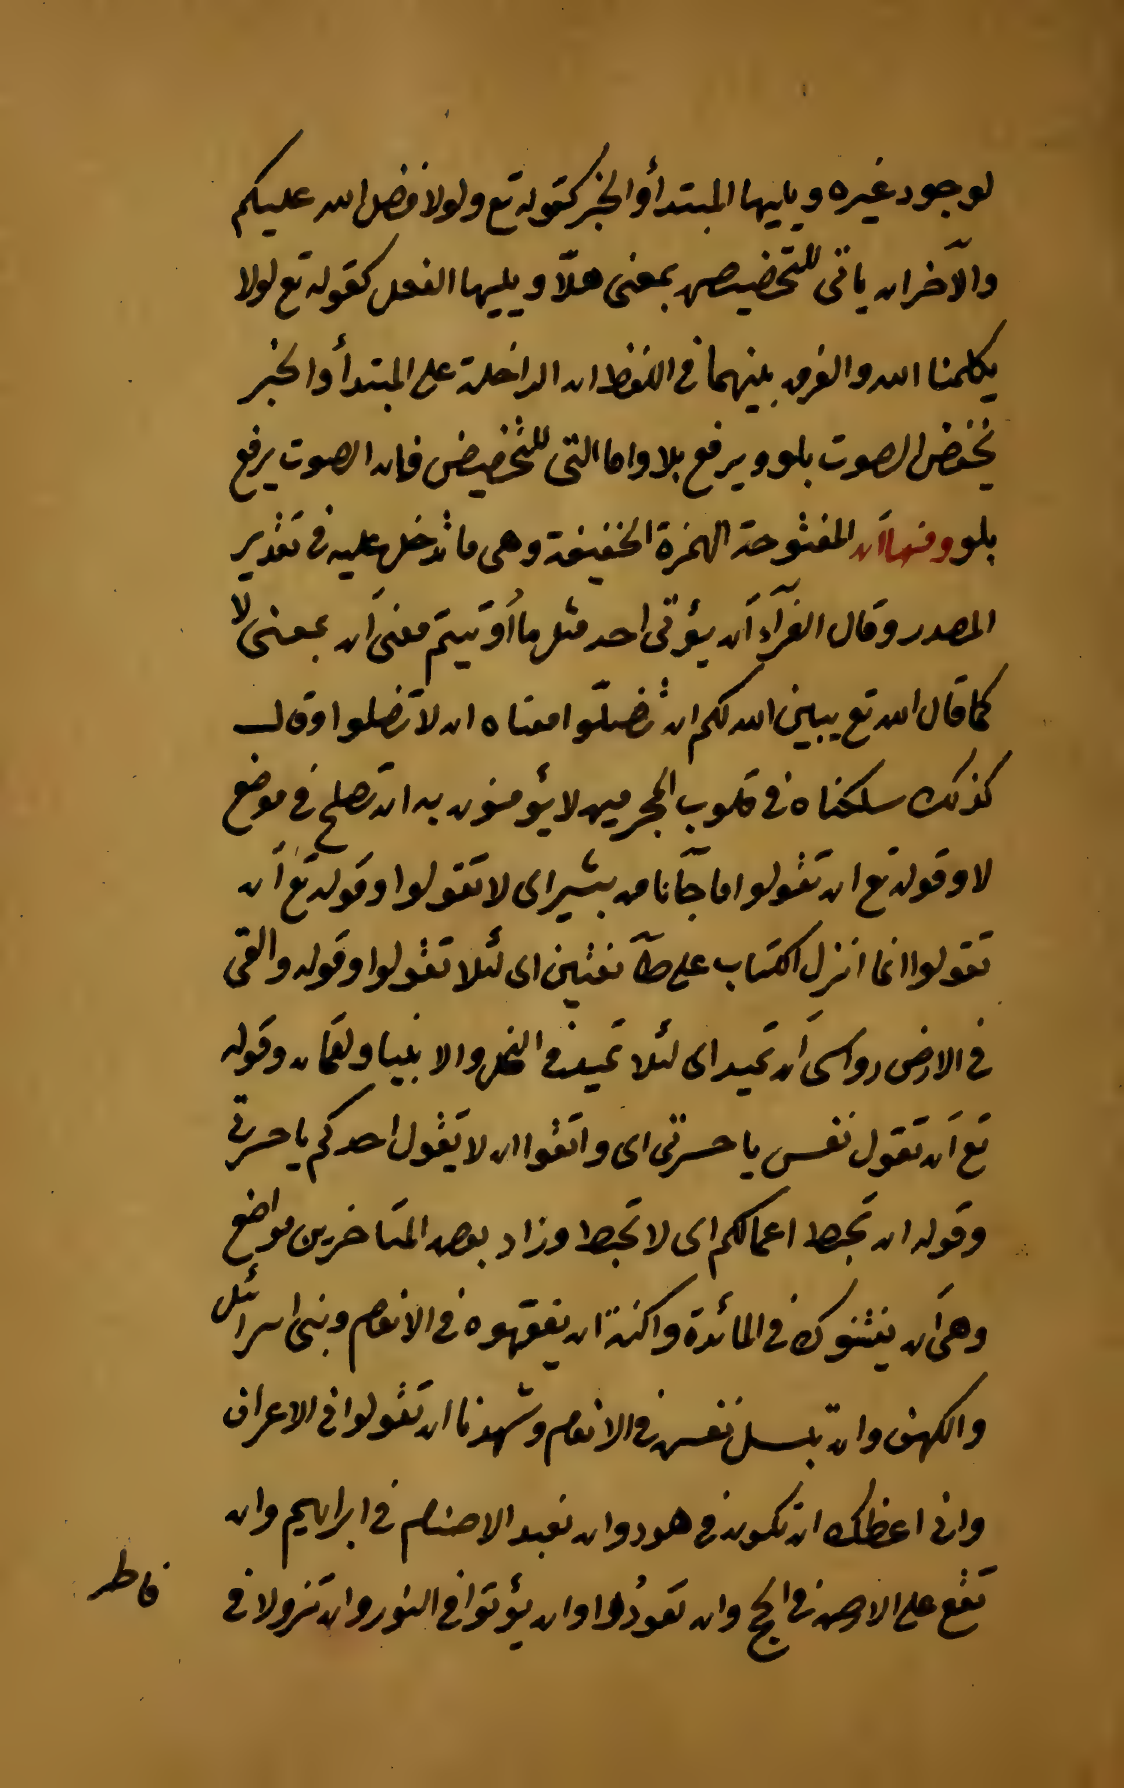 لوجود غيره ويليها المبتدأ والخبر كقوله تع ولولا فضل الله عليكم
والآخر ان ياتى للتحضيض بمعنى هلّا ويليها الفعل كقوله تع لولا
يكلمنا الله والفرق بينهما فى اللفظ ان الداخلة على المبتدأ والخبر
يخفض الصوت بلو ويرفع بلا واما التى للتخضيض فان الصوت يرفع
بلو ومنها أن المفتوحة الهمزة الخفيفة وهى ما تدخل عليه فى تقدير
المصدر وقال الفرّآء أن يؤتى احد مثل ما أوتيتم معنى أن بمعنى لا
كما قال الله تع يبين الله لكم ان تضلّوا معناه ان لا تضلوا وقال
كذلك سلكناه فى قلوب المجرمين لا يؤمنون به ان تصلح فى موضع
لا وقوله تع ان تقولوا ما جآءنا من بشير اى لا تقولوا وقوله تع أن
تقولوا انما انزل الكتاب على طآئفتين اى لئلا تقولوا وقوله والقى
فى الارض رواسى أن تميد اى لئلا تميد فى النحل والانبيا ولقمان وقوله
تع أن تقول نفس يا حسرتى اى واتقوا ان لا يقول احدكم يا حسرتى
وقوله ان تحبط اعمالكم اى لا تحبط وزاد بعض المتاخرين مواضع
وهى أن يفتنوك فى المائدة واكنة ان يفقهوه فى الانعام وبنى اسرائل
والكهف وان تبسل نفس فى الانعام وشهدنا ان تقولوا فى الاعراف
وانى اعظك ان تكون فى هود وان نعبد الاصنام فى ابراهيم وان
تقع على الارض فى الحج وان تعودُوا وان يؤتوا فى النور وان تزولا فى
فاطر